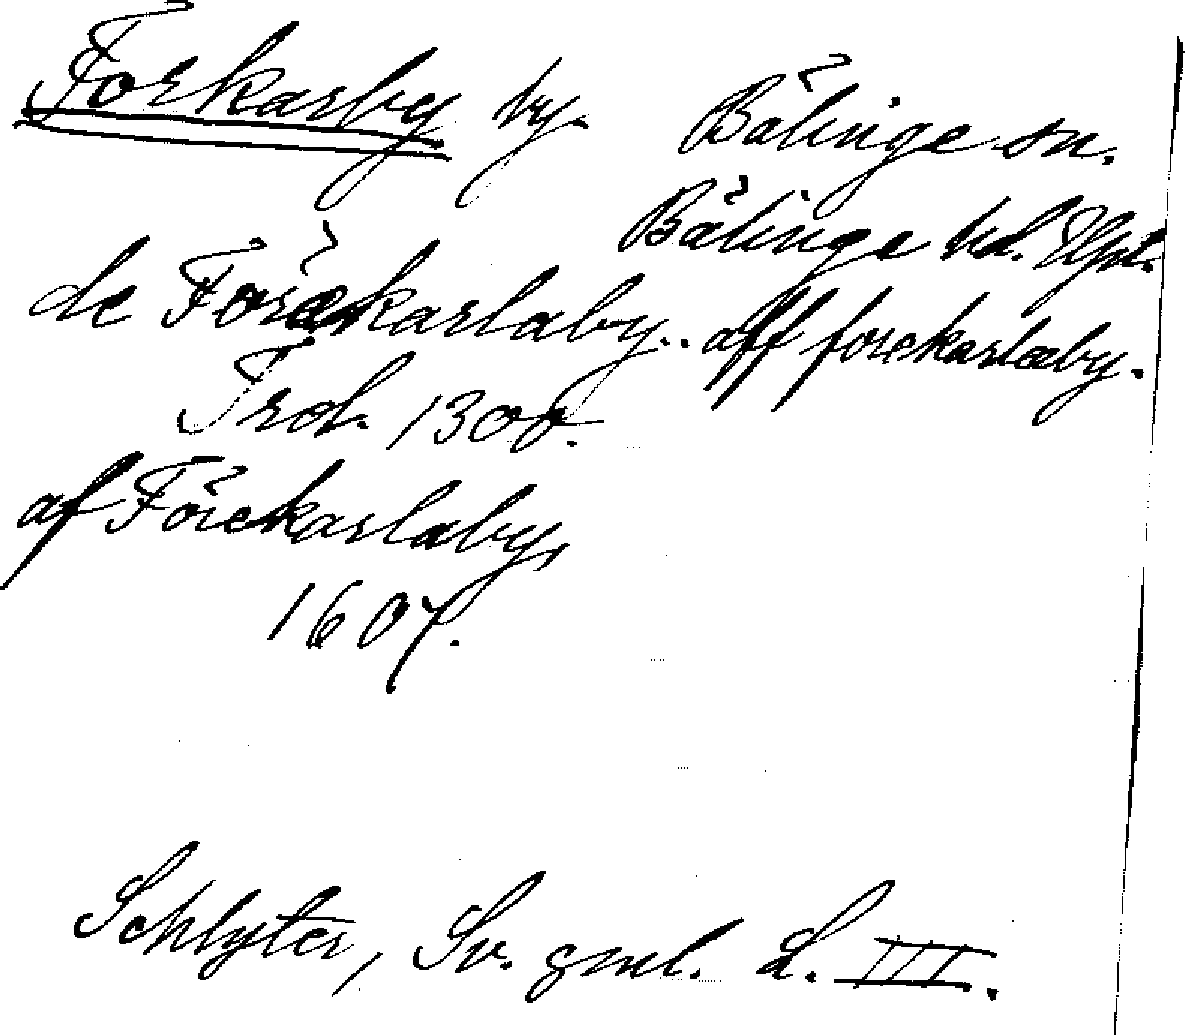 Forkarby by. Bälinge sn.
Bälinge hd. Upl.
de Forækarlaby. aff forekarlæby.
Trol. 1300.
af Förekarlaby,
1607.
Schlyter, Sv. gml. L. III.